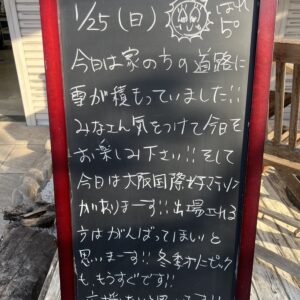 1/25(日) はれ
5°
今日は家の方の道路に
雪が積もっていました!!
みなさん気をつけて今日も
お楽しみ下さい!! そして
今日は大阪国際女子マラソン
がありまーす!! 出場される
方はがんばってほしいと
思いまーす!! 冬季オリンピック
も、もうすぐです!!